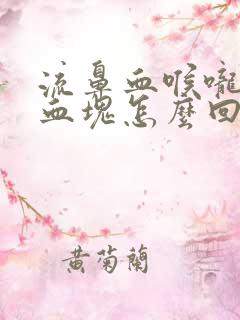 流鼻血喉嚨
血塊怎麼回
黃菊蘭